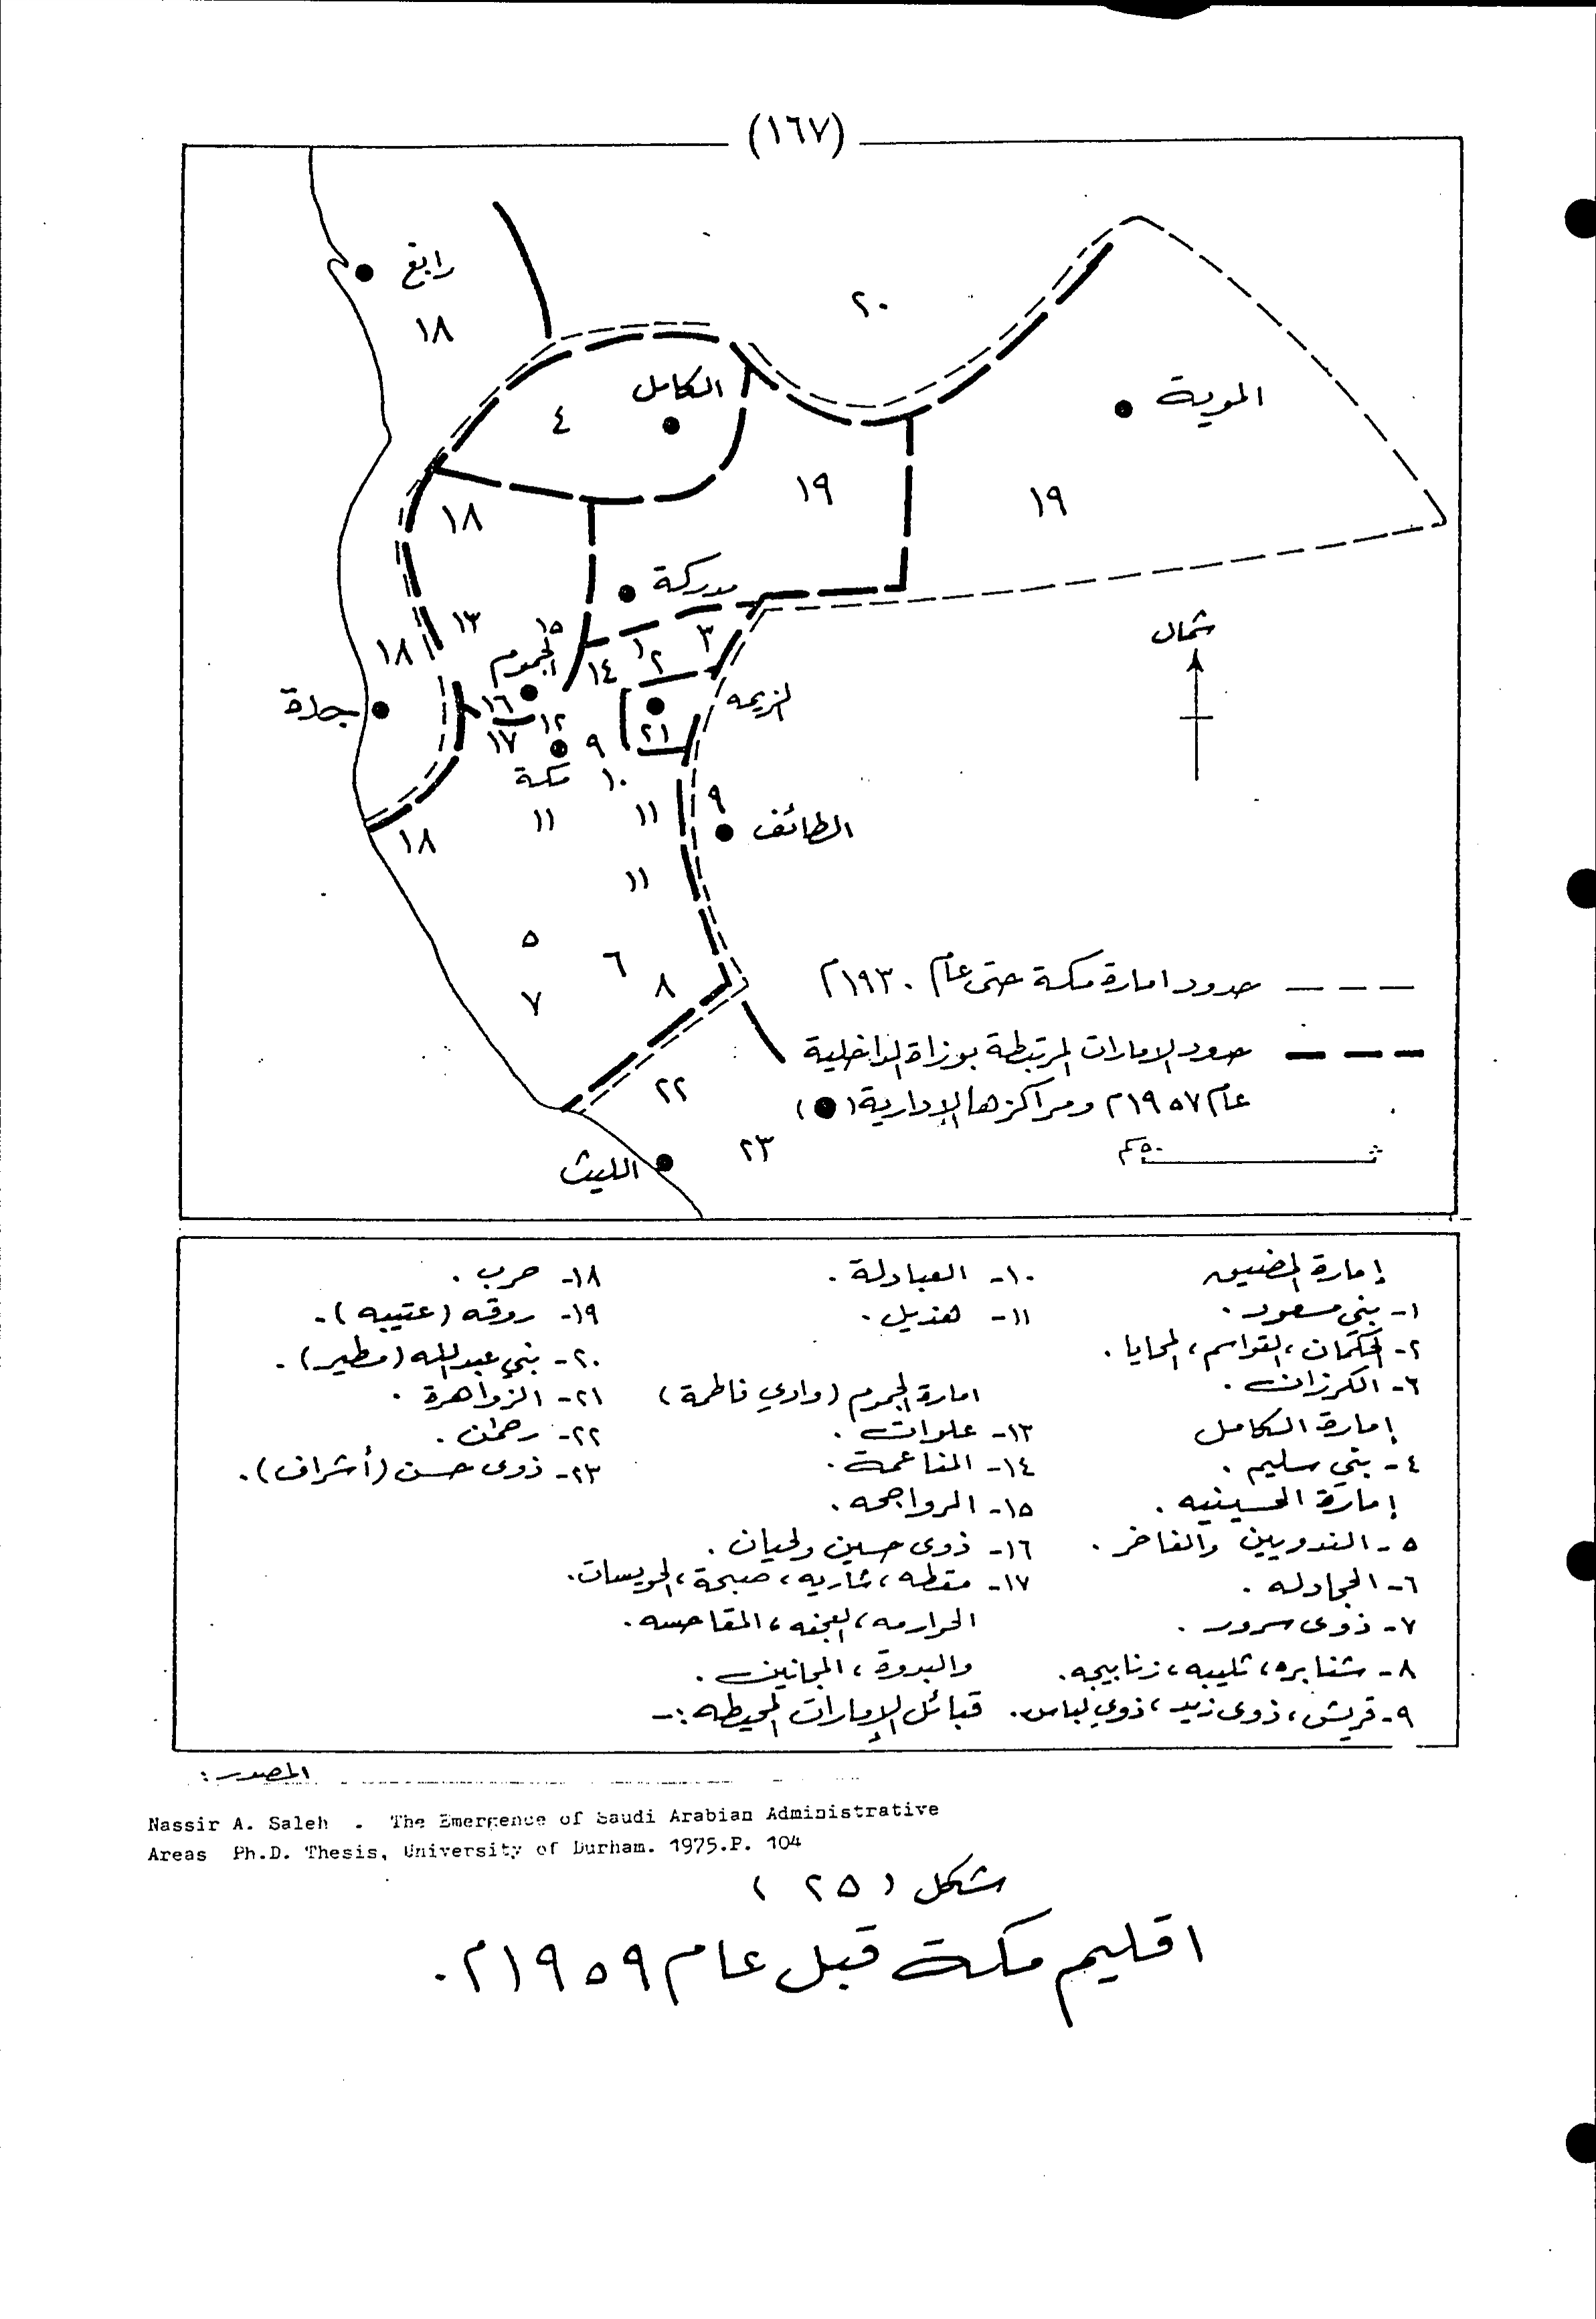 (١٦٧)
رابغ
١٨
٢٠
الكامل
٤
الموية
١٩
١٩
١٨
مدركة
١٣
١٥
٣
١
٢
١٤
شمال
١٨
الجموم
١٦
جدة
الزيمه
١٢
٢١
١٧
٩
مكة
١٠
٩
١١
١١
الطائف
١٨
١١
٥
٦
٨
٧
حدود امارة مكة حتى عام ١٩٣٠م
حدود الإمارات المرتبطة بوزاة الداخلية
عام ١٩٥٧م ومراكزها الإدارية (●)
٢٢
٢٣
٥٠كم
الليث
إمارة المضيق
١- بني مسعود .
٢- الحكمان، القواسم، المحايا .
٦- الكرزان .
إمارة الكامل
٤- بني سليم .
إمارة الحسينيه .
٥- الندويين والفاخر .
٦- الجحادله .
٧- ذوى سرور .
٨- شنابره، ثليبه، زنابيجه.
٩- قريش، ذوى زيد، ذوي لباس.
١٠- العبادلة .
١١- هذيل .
امارة الجموم (وادي فاطمة)
١٣- علوات .
١٤- المناعمة .
١٥- الرواجحه .
١٦- ذوى حسين ولحيان .
١٧- مقطه، شاريه، صبحة، الحويسات.
الحرارمه، العجفه، المقاحسه .
والبدوة، المجانين .
قبائل الإمارات المحيطه :-
١٨- حرب .
١٩- روقه (عتيبه) .
٢٠- بني عبدالله (مطير) .
٢١- الزواهرة .
٢٢- رحمان .
٢٣- ذوى حسن (أشراف) .
المصدر :
Nassir A. Saleh . The Emergence of Saudi Arabian Administrative
Areas Ph.D. Thesis, University of Durham. 1975.P. 104
شكل (٢٥)
اقليم مكة قبل عام ١٩٥٩م .